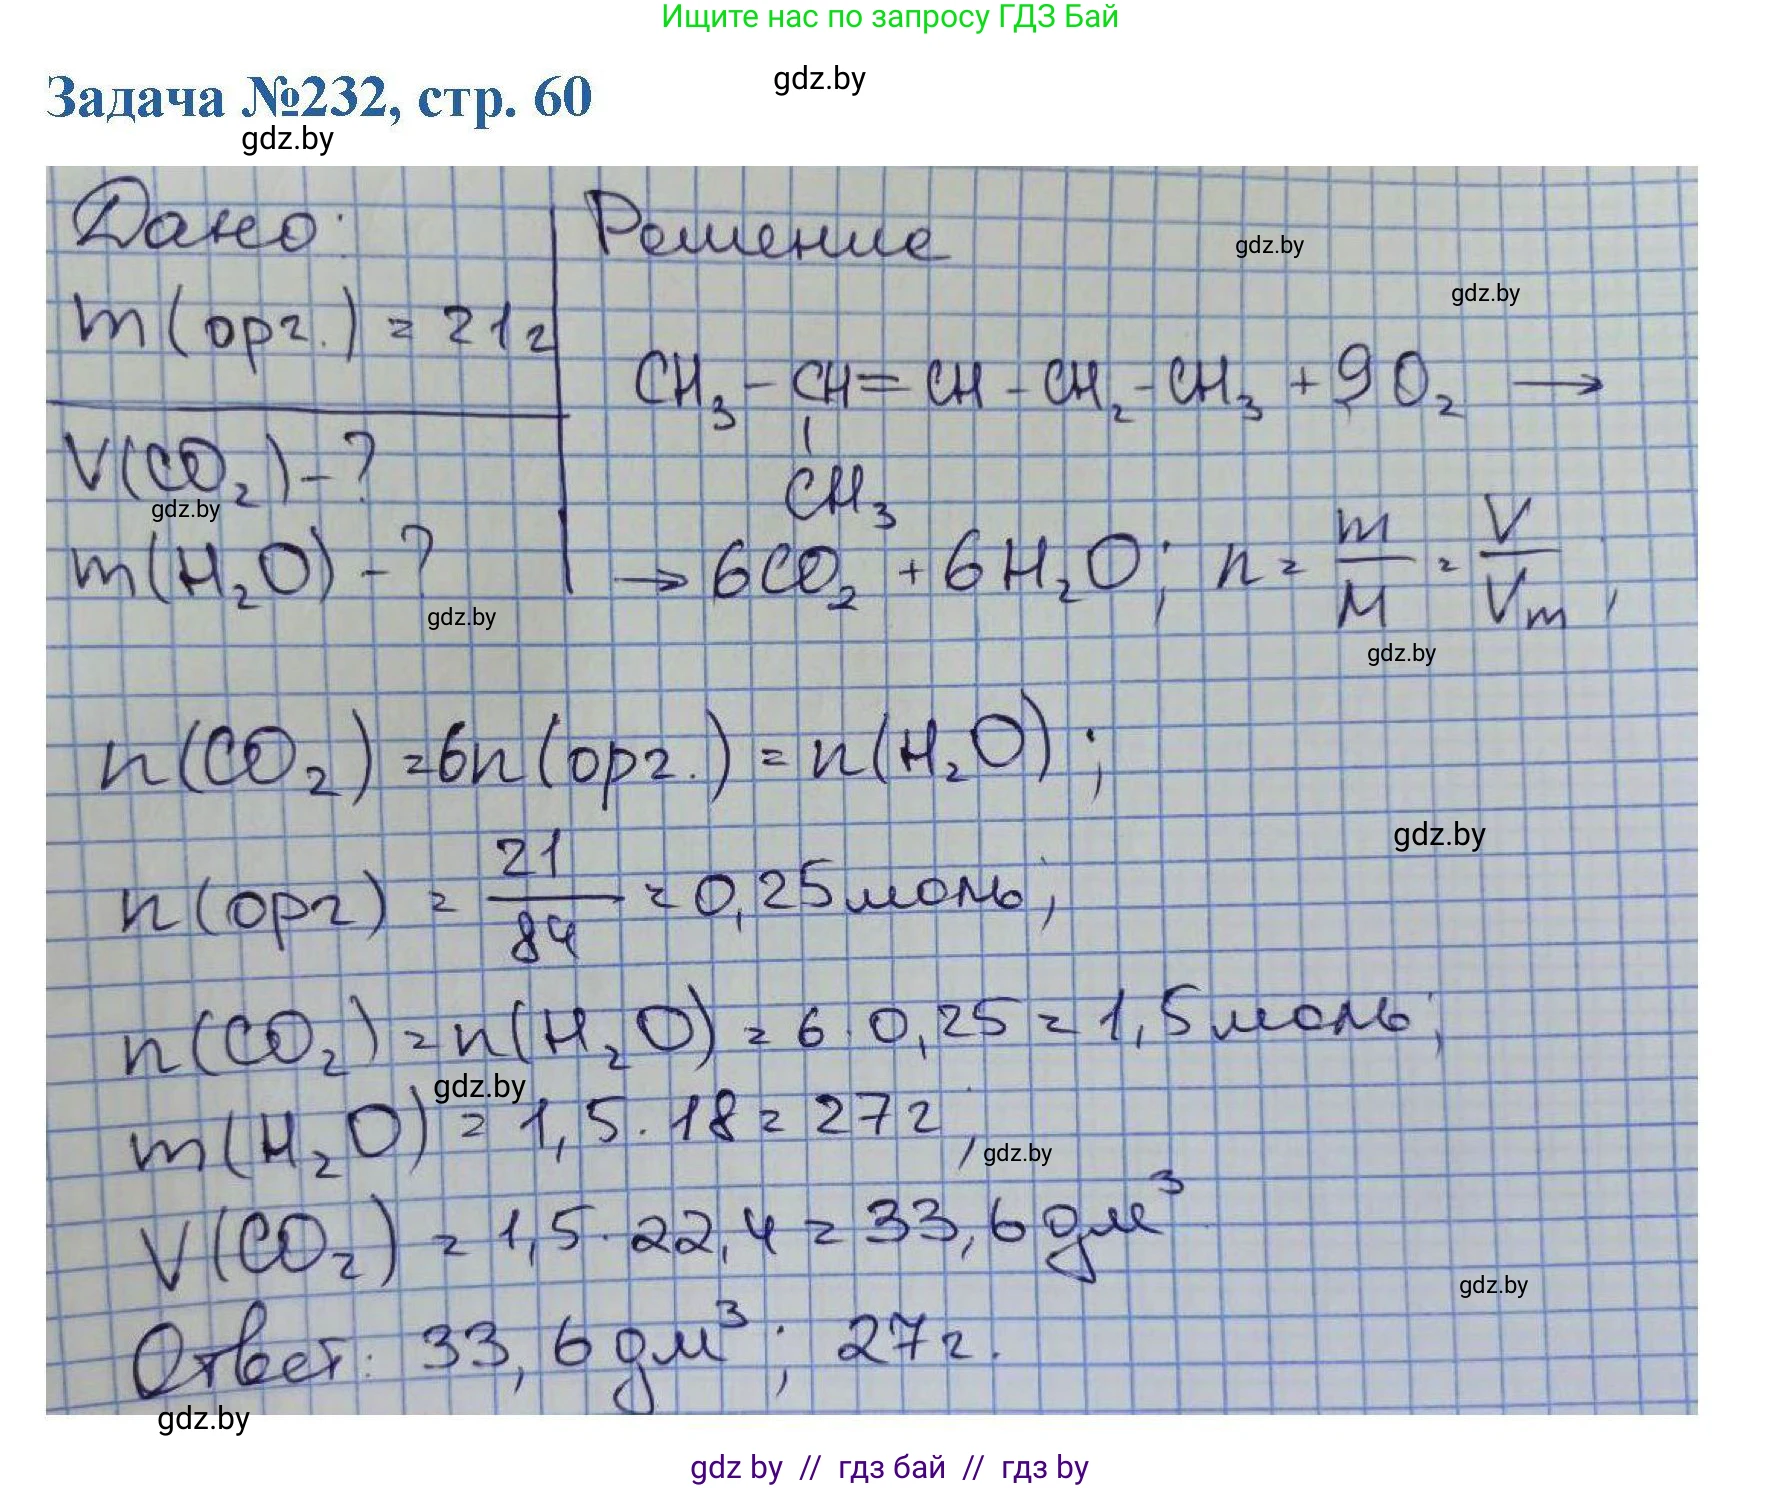 Ищите нас по запросу ГДЗ Бай
gdz.by
Задача №232, стр. 60
gdz.by
Дано:
Решение
gdz.by
gdz.by
m(орг.) = 21г
CH₃ – CH = CH – CH₂ – CH₃ + 9O₂ →
CH₃
V(CO₂) – ?
gdz.by
m(H₂O) – ?
→ 6CO₂ + 6H₂O; n = m/M = V/Vm,
gdz.by
gdz.by
n(CO₂) = 6n(орг.) = n(H₂O);
gdz.by
n(орг) = 21/84 = 0,25 моль;
n(CO₂) = n(H₂O) = 6·0,25 = 1,5 моль;
gdz.by
m(H₂O) = 1,5·18 = 27г;
gdz.by
V(CO₂) = 1,5·22,4 = 33,6 дм³
gdz.by
Ответ: 33,6 дм³; 27г.
gdz.by
gdz by // гдз бай // гдз by